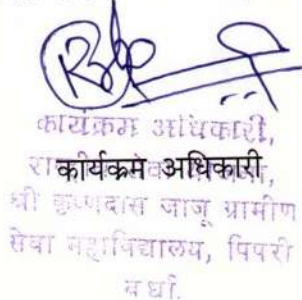 कार्यक्रम अधिकारी,
कार्यक्रम अधिकारी
श्री कृष्णदास जाजू ग्रामीण
सेवा महाविद्यालय, पिपरी
वर्धा.